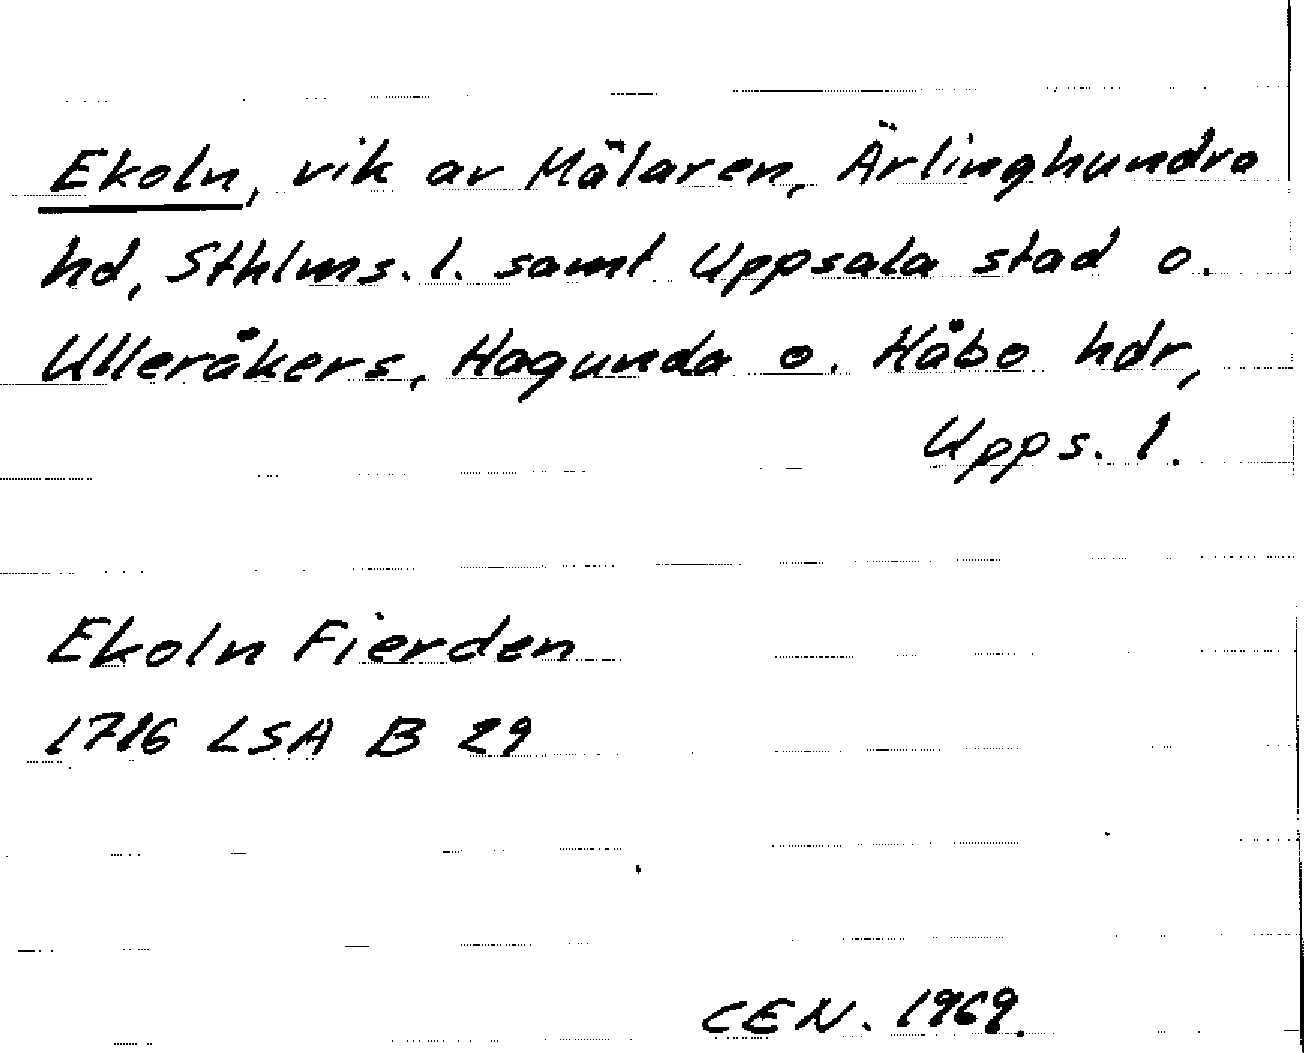 Ekoln, vik av Mälaren, Ärlinghundra
hd, Sthlms. l. samt Uppsala stad o.
Ulleråkers, Hagunda o. Håbo hdr,
Upps. l.
Ekoln Fierden
1716 LSA B 29
CEN. 1969.